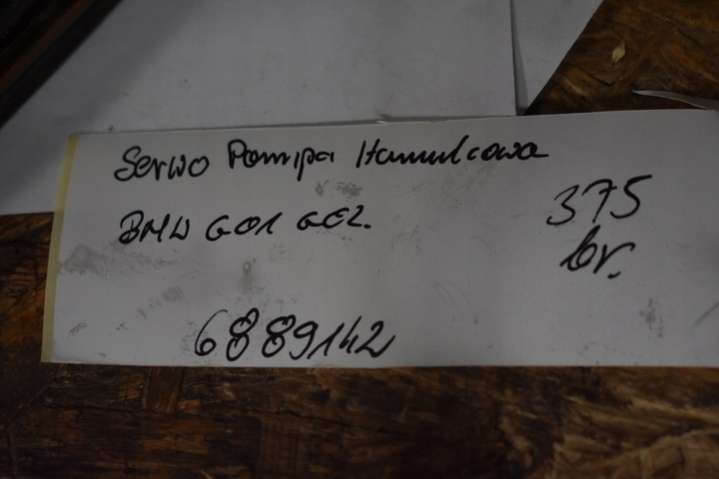 Serwo Pompa Hamulcowa
BMW G01 G02.
375
br.
6889142